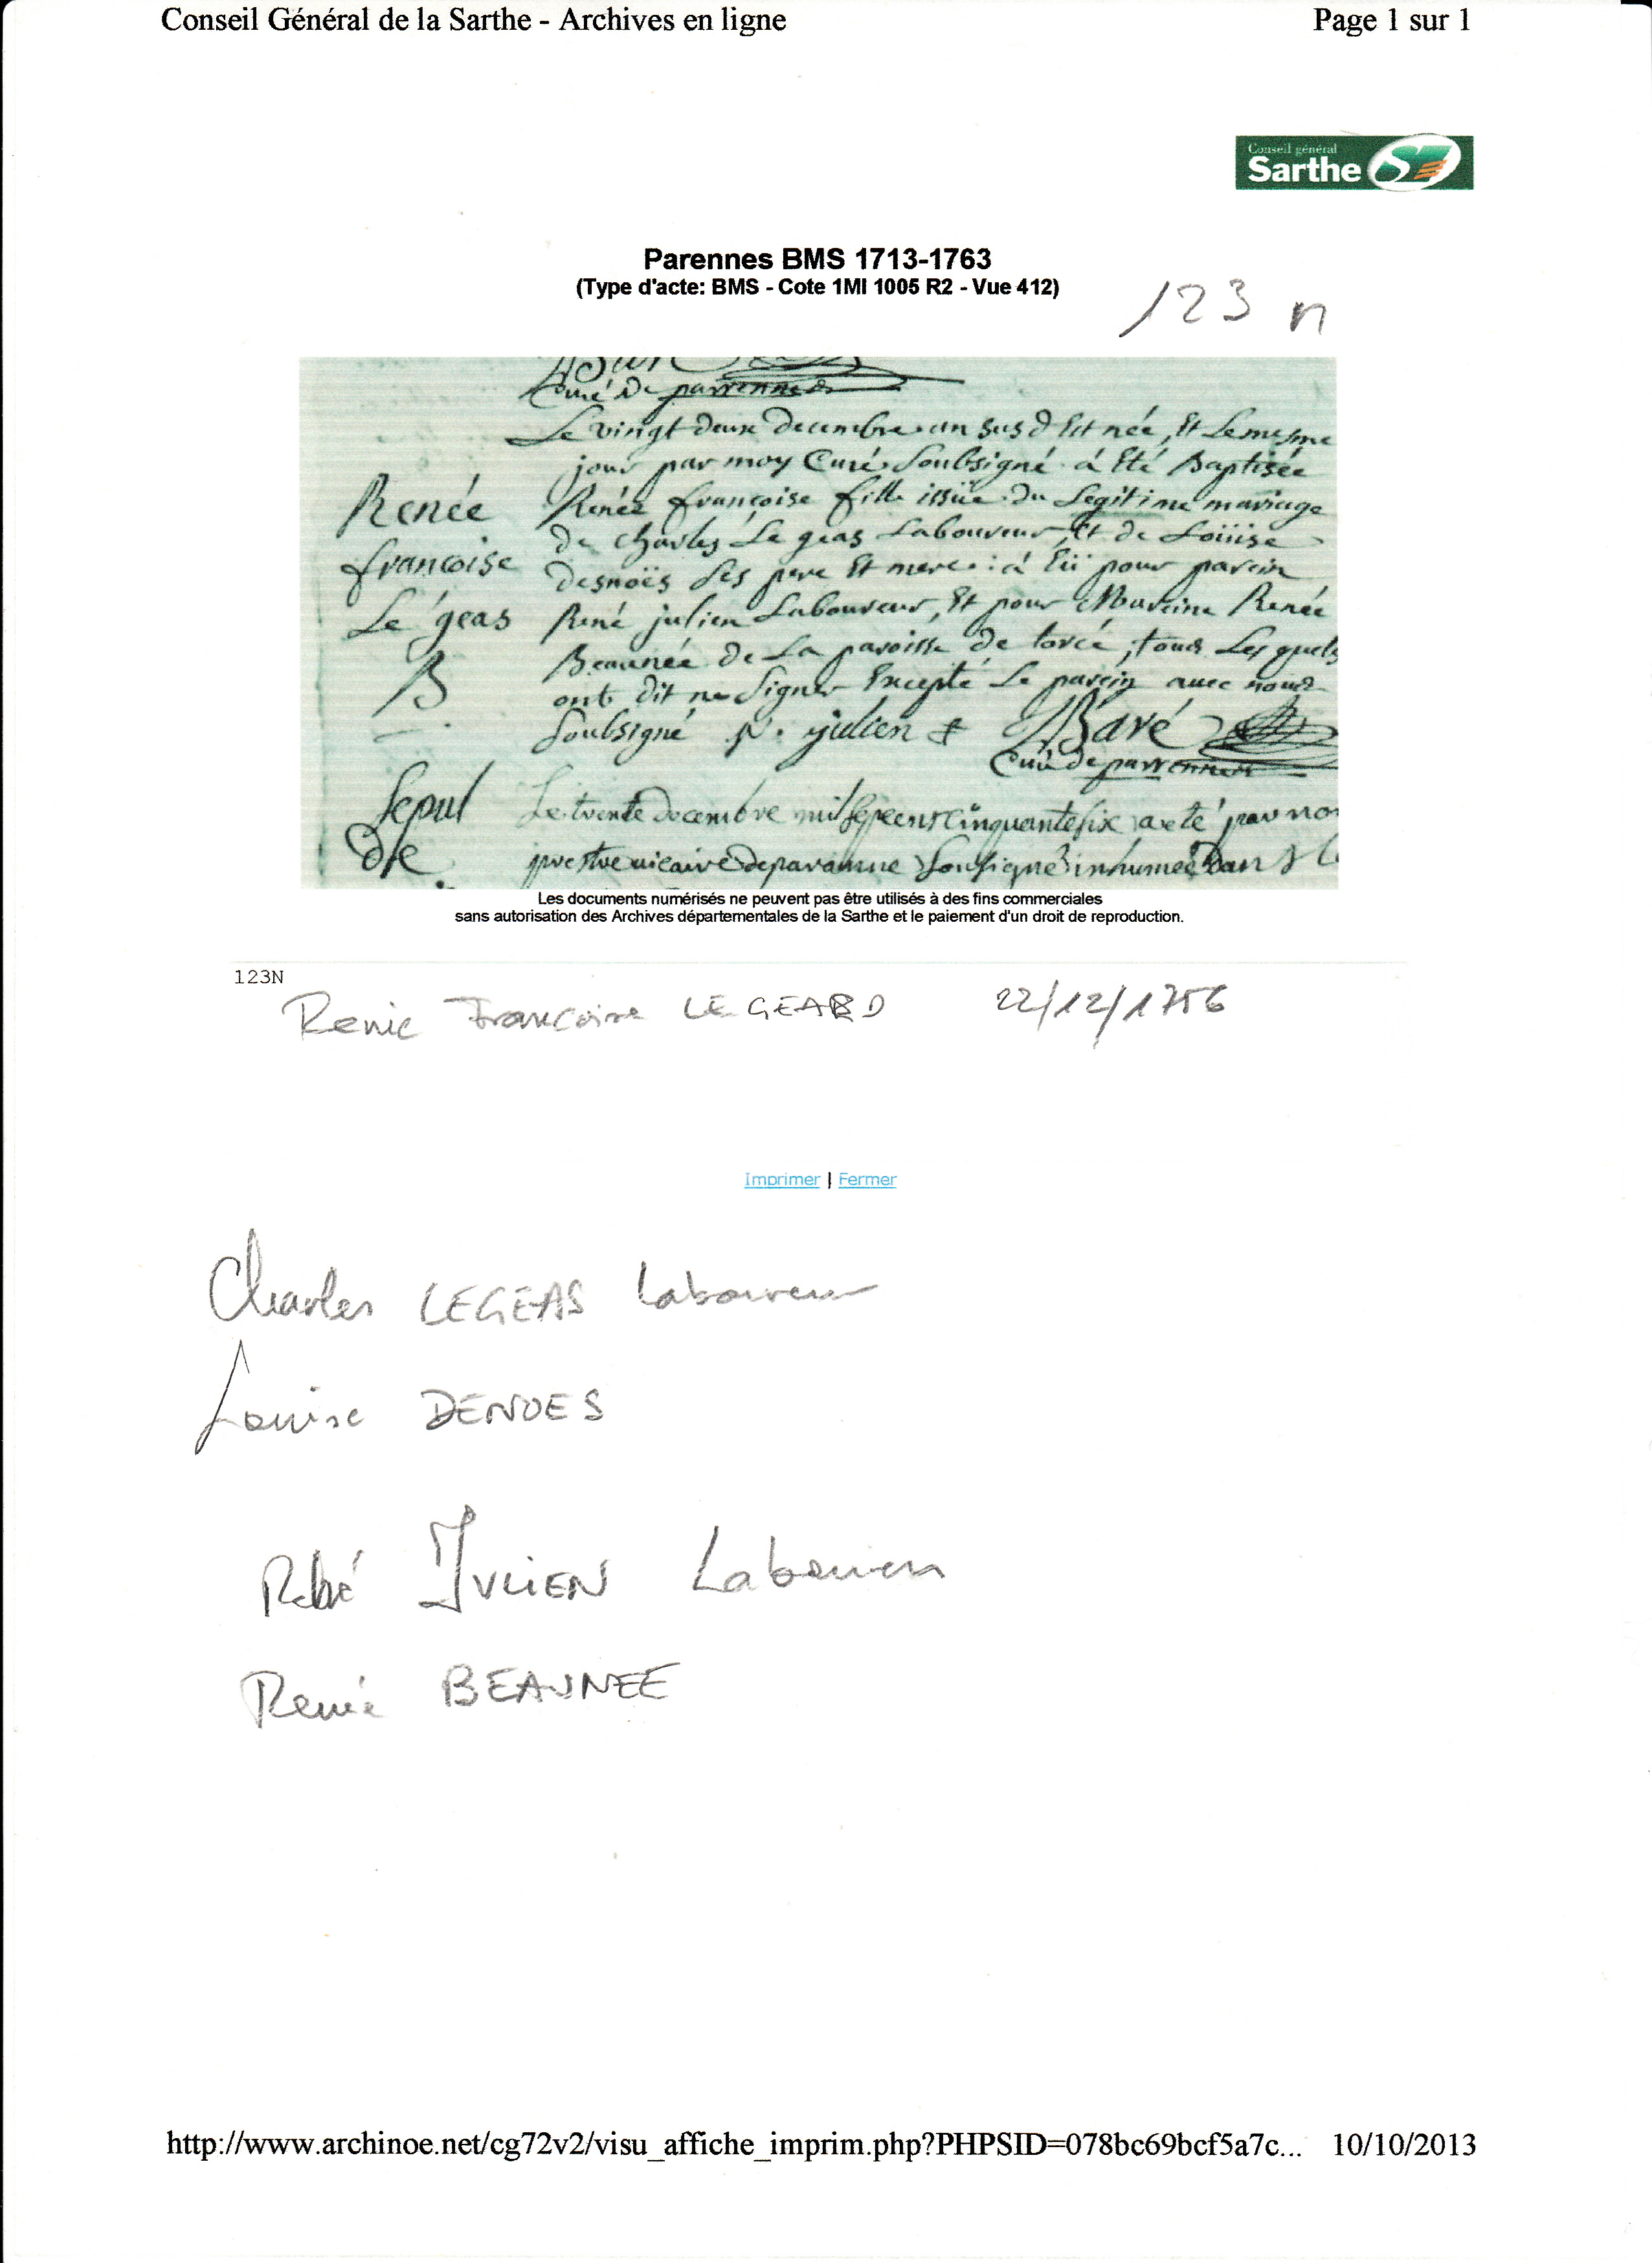 Conseil Général de la Sarthe - Archives en ligne Page 1 sur 1
Conseil général
Sarthe
Parennes BMS 1713-1763
(Type d'acte: BMS - Cote 1MI 1005 R2 - Vue 412)
123 n
Curé De parrennes
Le vingt deux decembre an sus d Est née, Et Le mesme
jour par moy Curé Soubsigné à Eté Baptisée
Renée françoise fille issüe du Legitime mariage
De charles Le geas Laboureur, Et de Loüise
Desnoës Ses pere Et mere : à Eü pour parein
René julien Laboureur, Et pour Mareine Renée
Beaunée de La paroisse De torcé, tous Lesquels
ont dit ne Signer Excepté Le parein avec nous
Soubsigné R. julien Baré
Curé De parrennes
Renée
françoise
Le geas
B
Sepul
De
Le trente decembre mil sept cent cinquante six a eté par nou
prestre vicaire de parenne Sousigné inhumée Dans le
Les documents numérisés ne peuvent pas être utilisés à des fins commerciales
sans autorisation des Archives départementales de la Sarthe et le paiement d'un droit de reproduction.
123N
Renie Françoise LEGEARD 22/12/1756
Imprimer | Fermer
Charles LEGEAS Laboureur
Louise DENOES
René JULIEN Laboureur
Renée BEAUNEE
http://www.archinoe.net/cg72v2/visu_affiche_imprim.php?PHPSID=078bc69bcf5a7c... 10/10/2013